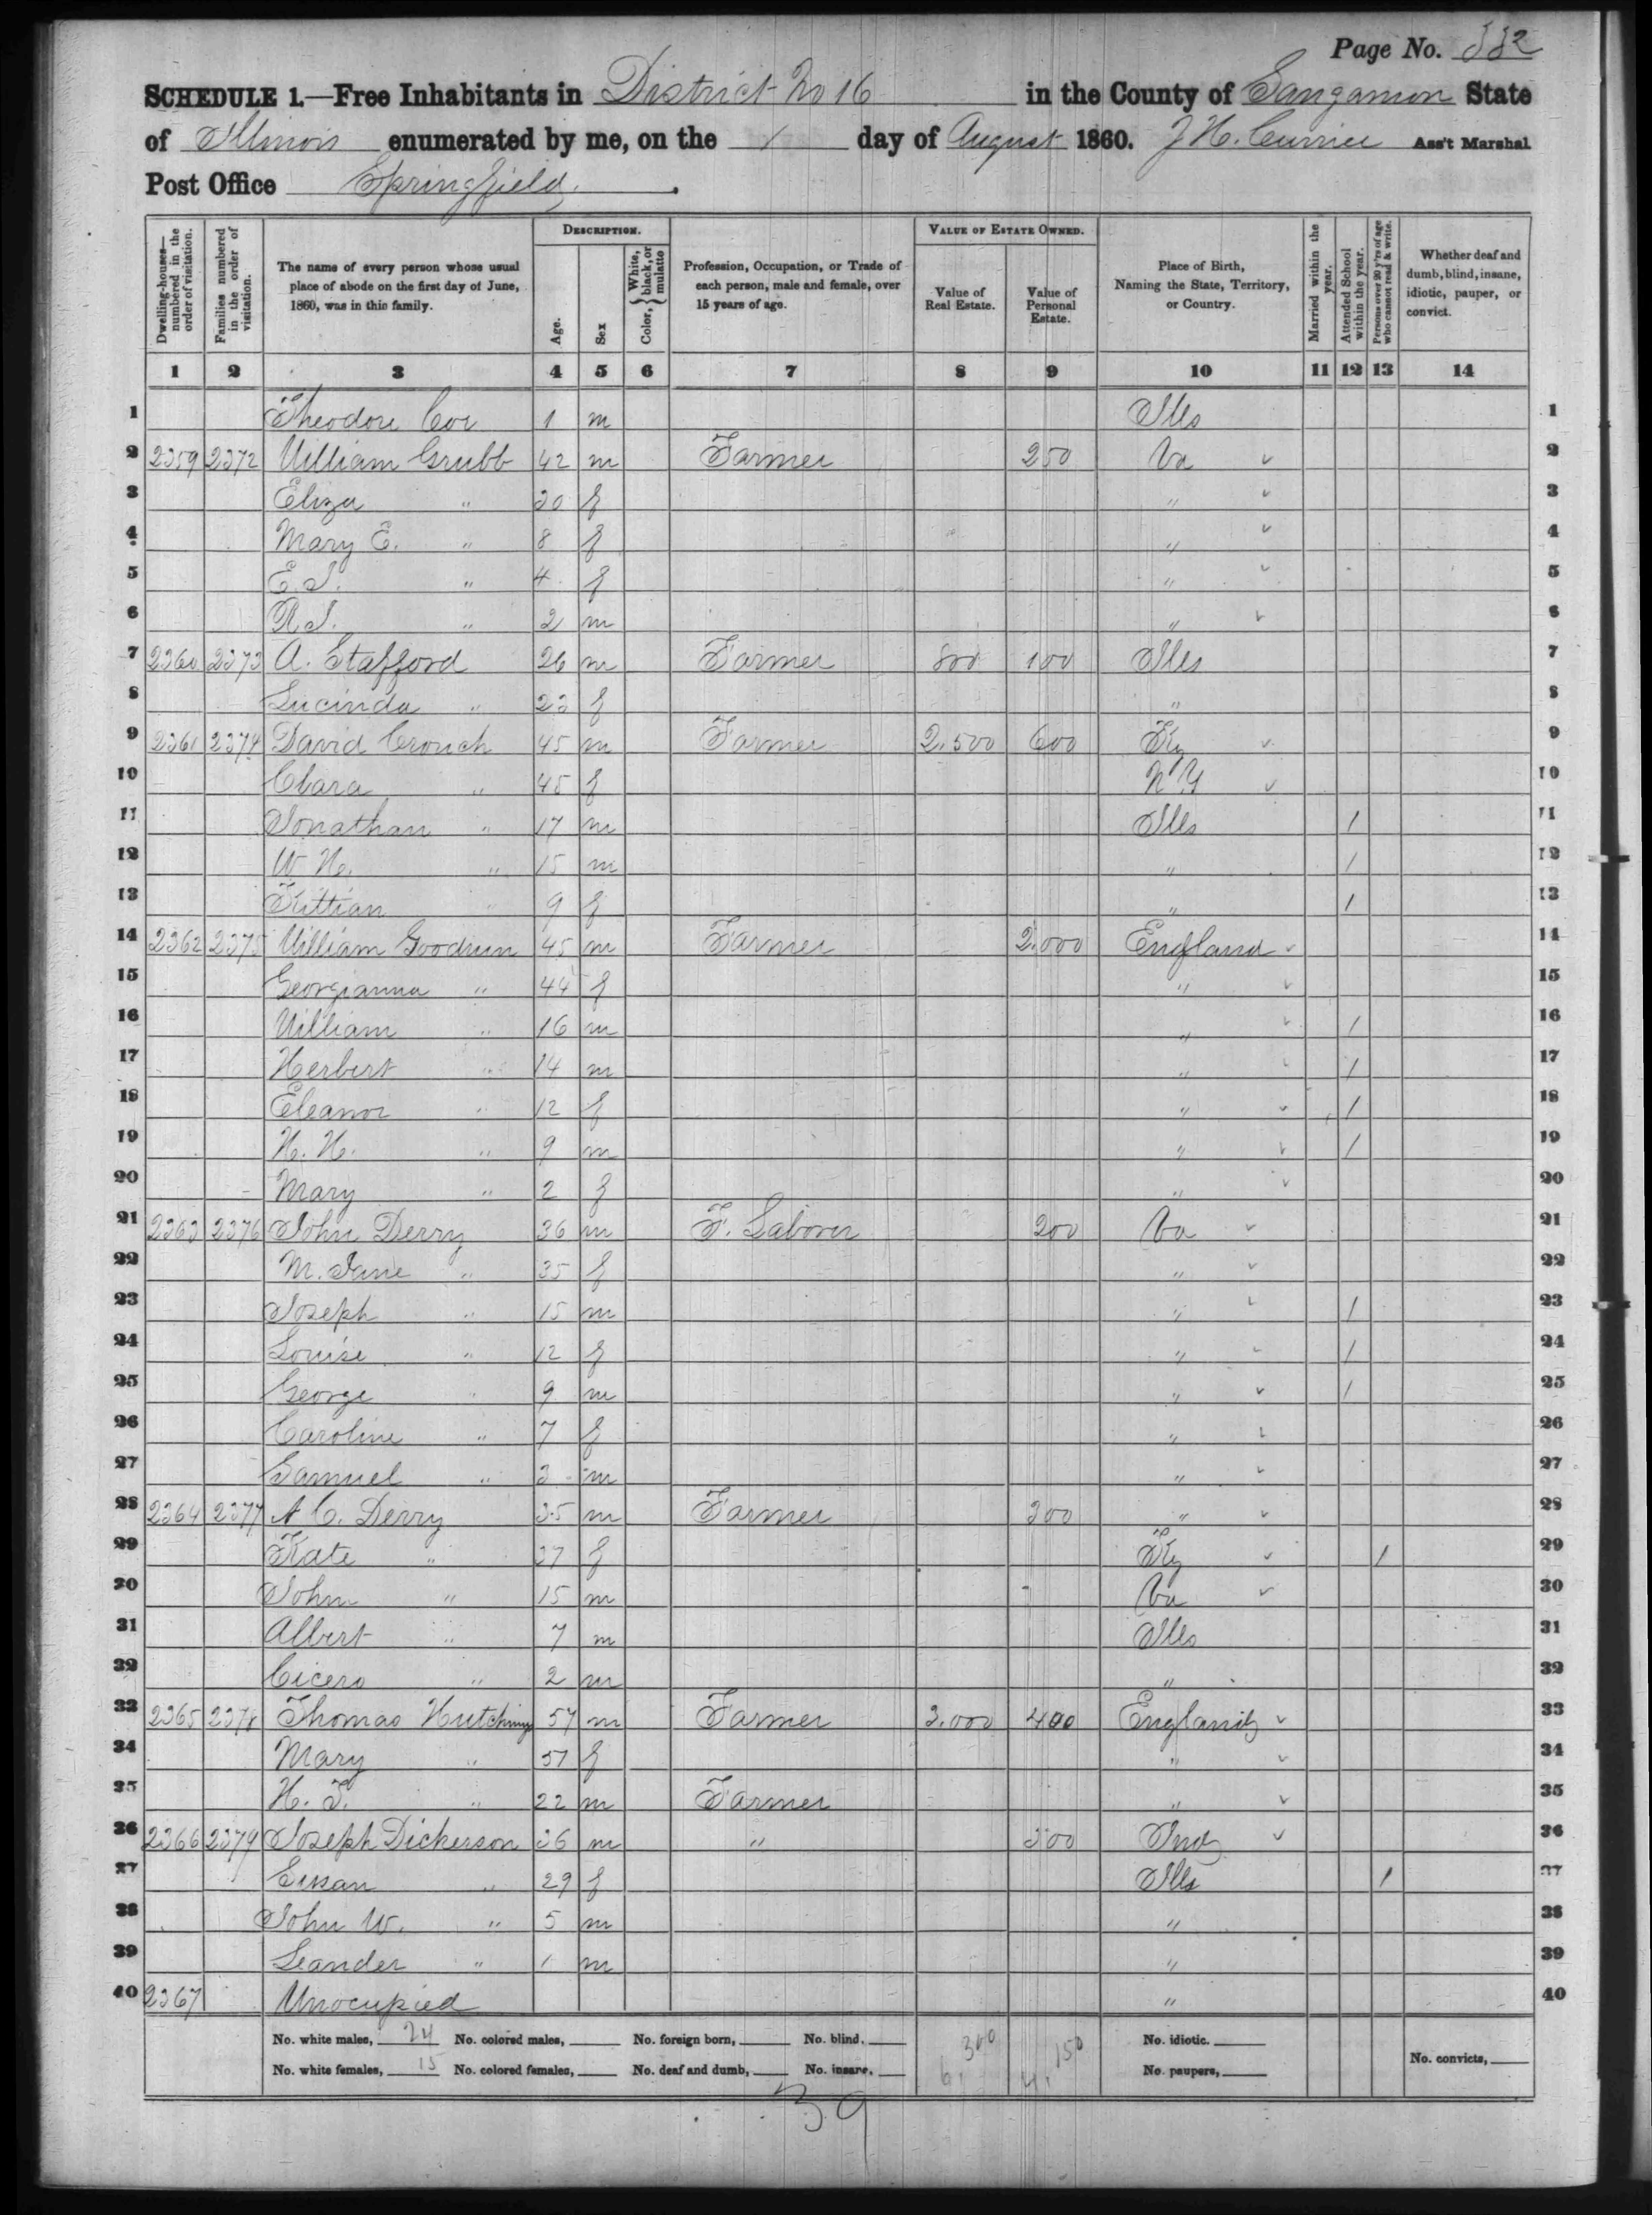 Page No. 332
SCHEDULE 1.—Free Inhabitants in District No 16 in the County of Sangamon State
of Illinois enumerated by me, on the 1 day of August 1860. J H. Currier Ass't Marshal
Post Office Springfield.
Dwelling-houses—numbered in the order of visitation.
Families numbered in the order of visitation.
The name of every person whose usual place of abode on the first day of June, 1860, was in this family.
DESCRIPTION.
Age.
Sex
Color, { White, black, or mulatto
Profession, Occupation, or Trade of each person, male and female, over 15 years of age.
VALUE OF ESTATE OWNED.
Value of Real Estate.
Value of Personal Estate.
Place of Birth, Naming the State, Territory, or Country.
Married within the year.
Attended School within the year.
Persons over 20 y'rs of age who cannot read & write.
Whether deaf and dumb, blind, insane, idiotic, pauper, or convict.
1 2 3 4 5 6 7 8 9 10 11 12 13 14
1 Theodore Cox 1 m Ills 1
2 2359 2372 William Grubb 42 m Farmer 250 Va 2
3 Eliza " 30 f " 3
4 Mary E. " 8 f " 4
5 E.S. " 4 f " 5
6 R.S. " 2 m " 6
7 2360 2373 A. Stafford 26 m Farmer 800 100 Ills 7
8 Lucinda " 23 f " 8
9 2361 2374 David Crouch 45 m Farmer 2.500 600 Ky 9
10 Clara " 45 f N Y 10
11 Jonathan " 17 m Ills 1 11
12 W H. " 15 m " 1 12
13 Kittian " 9 f " 1 13
14 2362 2375 William Goodrun 45 m Farmer 2.000 England 14
15 Georgianna " 44 f " 15
16 William " 16 m " 1 16
17 Herbert " 14 m " 1 17
18 Eleanor " 12 f " 1 18
19 H. H. " 9 m " 1 19
20 Mary " 2 f " 20
21 2363 2376 John Derry 36 m F. Laborer 200 Va 21
22 M. Jane " 35 f " 22
23 Joseph " 15 m " 1 23
24 Louise " 12 f " 1 24
25 George " 9 m " 1 25
26 Caroline " 7 f " 26
27 Samuel " 3 m " 27
28 2364 2377 A C. Derry 35 m Farmer 300 " 28
29 Kate " 27 f Ky 1 29
30 John " 15 m Va 30
31 Albert " 7 m Ills 31
32 Cicero " 2 m " 32
33 2365 2378 Thomas Hutchings 57 m Farmer 3.000 400 England 33
34 Mary " 57 f " 34
35 H. T. " 22 m Farmer " 35
36 2366 2379 Joseph Dickerson 36 m " 300 Ind 36
37 Susan " 29 f Ills 1 37
38 John W. " 5 m " 38
39 Leander " 1 m " 39
40 2367 Unocupied " 40
No. white males, 24 No. colored males, No. foreign born, No. blind. No. idiotic.
No. white females, 15 No. colored females, No. deaf and dumb, No. insane, 6,300 4,150 No. paupers, No. convicts,
39